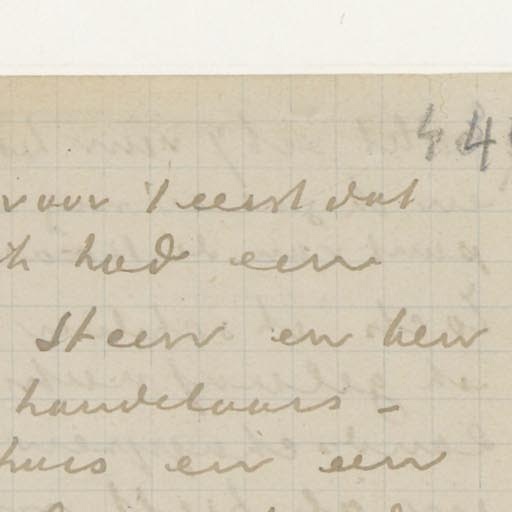 44
voor 't eerst dat
had een
Steen en ben
handelaars -
huis en een